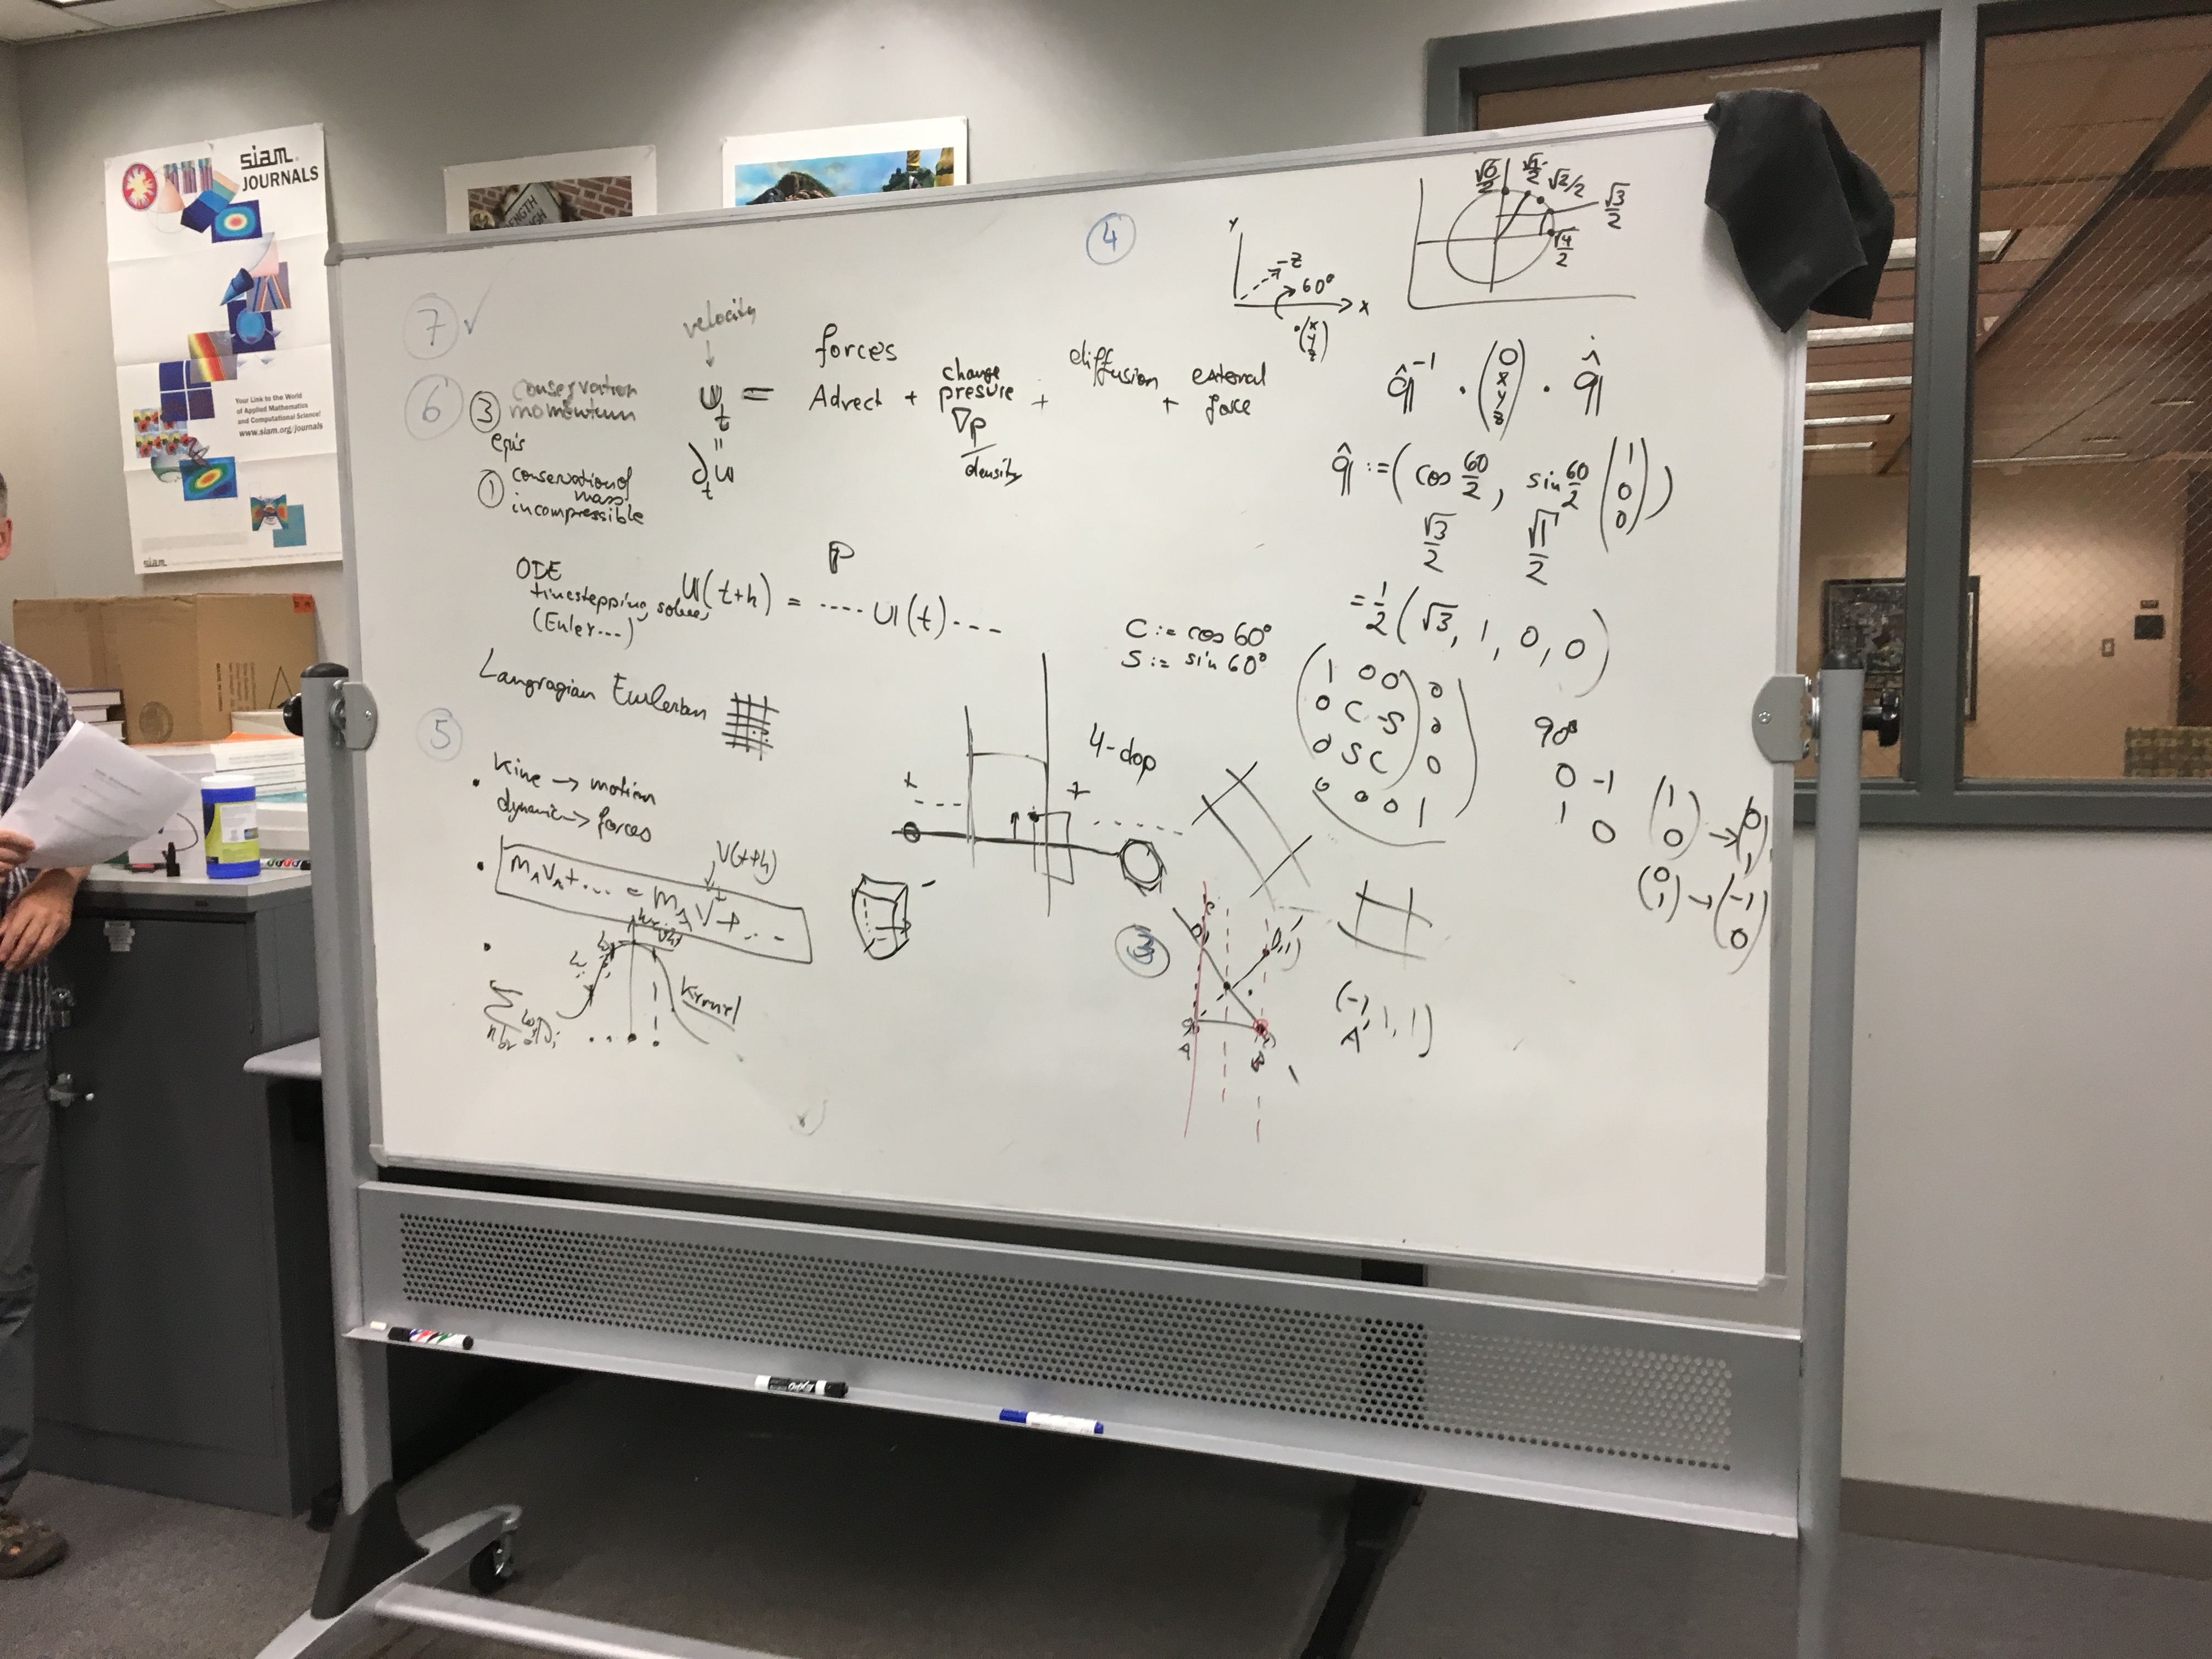 siam.
JOURNALS
Your Link to the World
of Applied Mathematics
and Computational Science!
www.siam.org/journals
siam
7 ✓
velocity
↓
6
③ conservation
momentum
eqis
① conservation of
mass
incompressible
u_t =
"
∂_t u
forces
Advect + change presure + diffusion + external force
∇p
density
ODE
timestepping
(Euler...)
P
U(t+h) = ---- U(t)---
Langragian Eulerian
5
• kine → motion
dynamic → forces
• m_A V_A + ... = m_A V + ...
V(t+h)
kernel
4
Y
-z
60°
x
(x y z)
√0/2
√1/2
√2/2
√3/2
√4/2
q̂⁻¹ · (0 x y z) · q̂
q̂ := (cos 60/2, sin 60/2 (1 0 0))
√3/2 √1/2
= 1/2 (√3, 1, 0, 0)
C := cos 60°
S := sin 60°
1 0 0 0
0 C -S 0
0 S C 0
0 0 0 1
90°
0 -1
1 0
(1 0) → (0 1)
(0 1) → (-1 0)
4-dop
3
A
(-1, 1, 1)
A